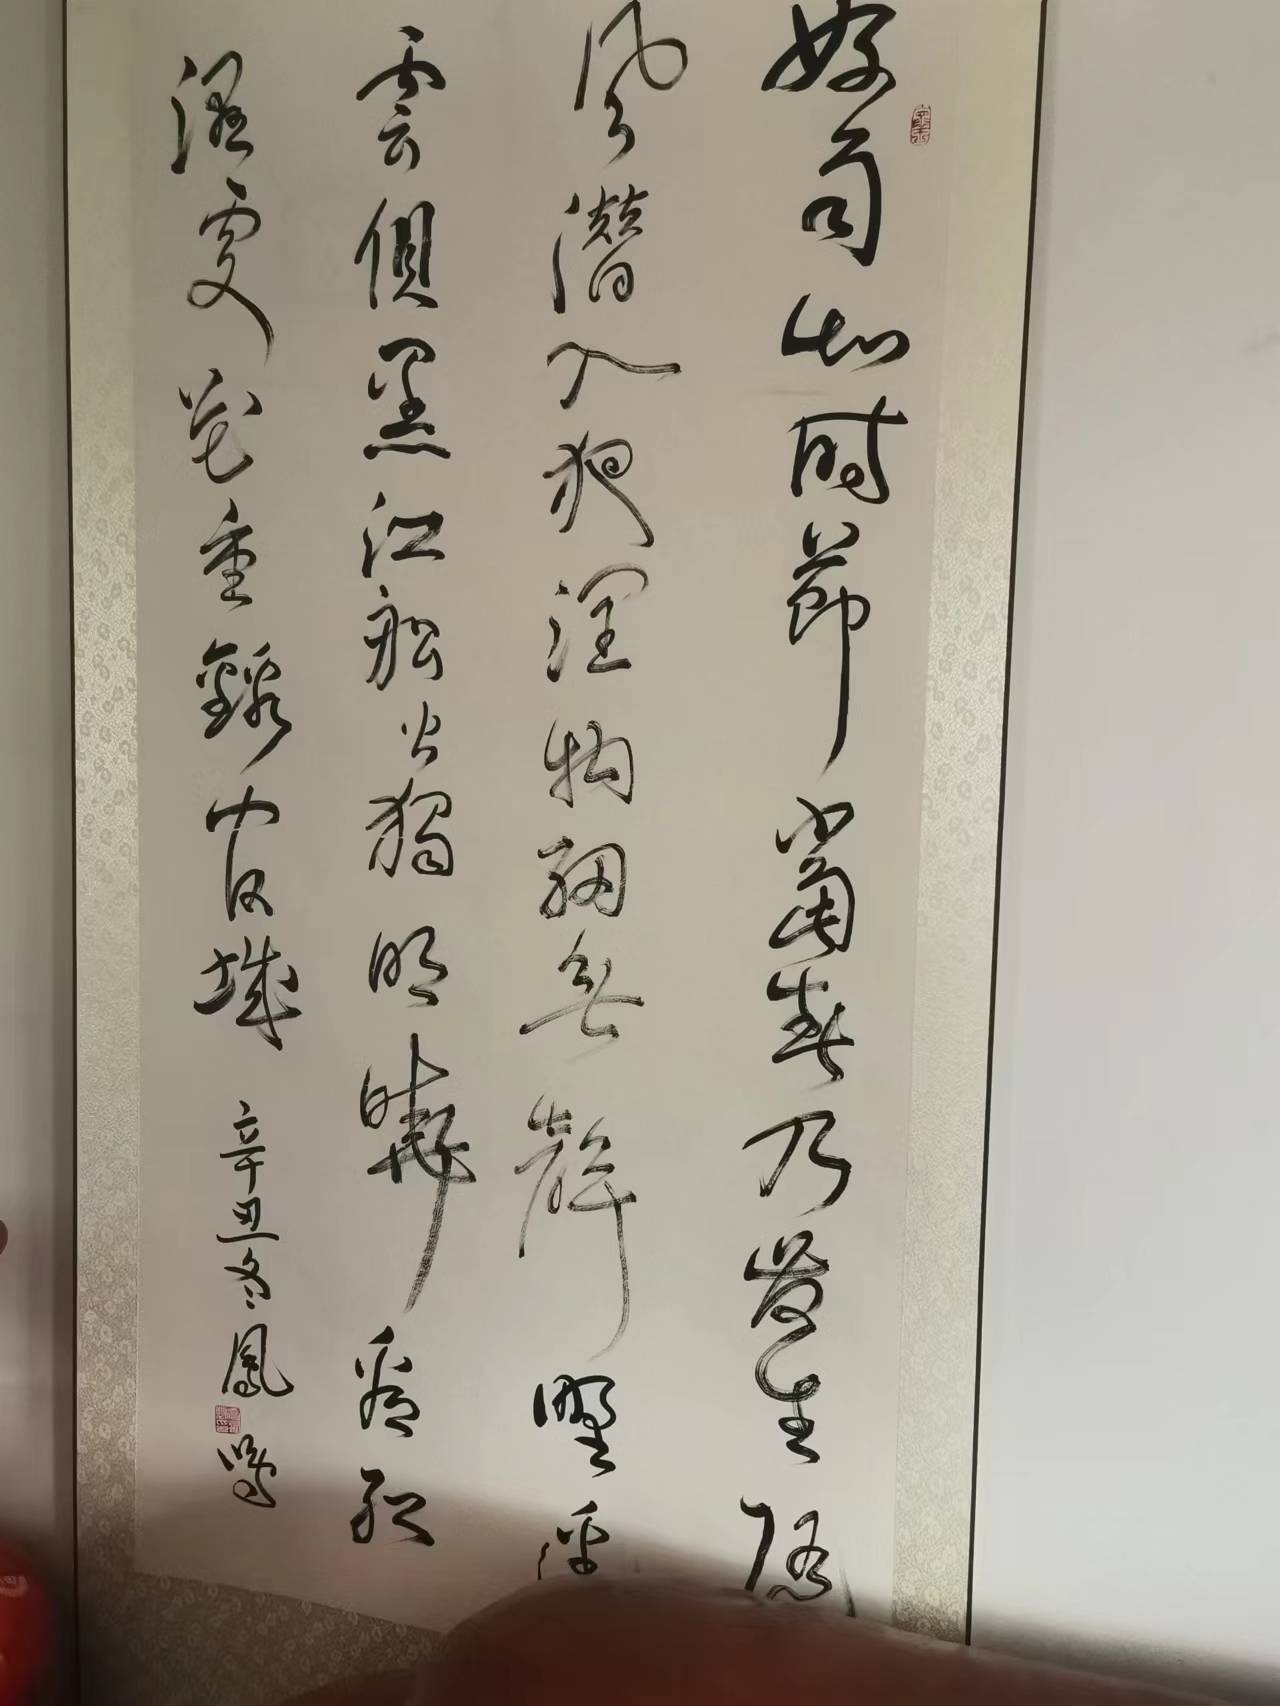 好雨知时節當春乃發生隨
風潛入夜潤物細無聲野徑
雲俱黑江船火獨明曉看紅
濕處花重錦官城 辛丑冬 鳳鳴